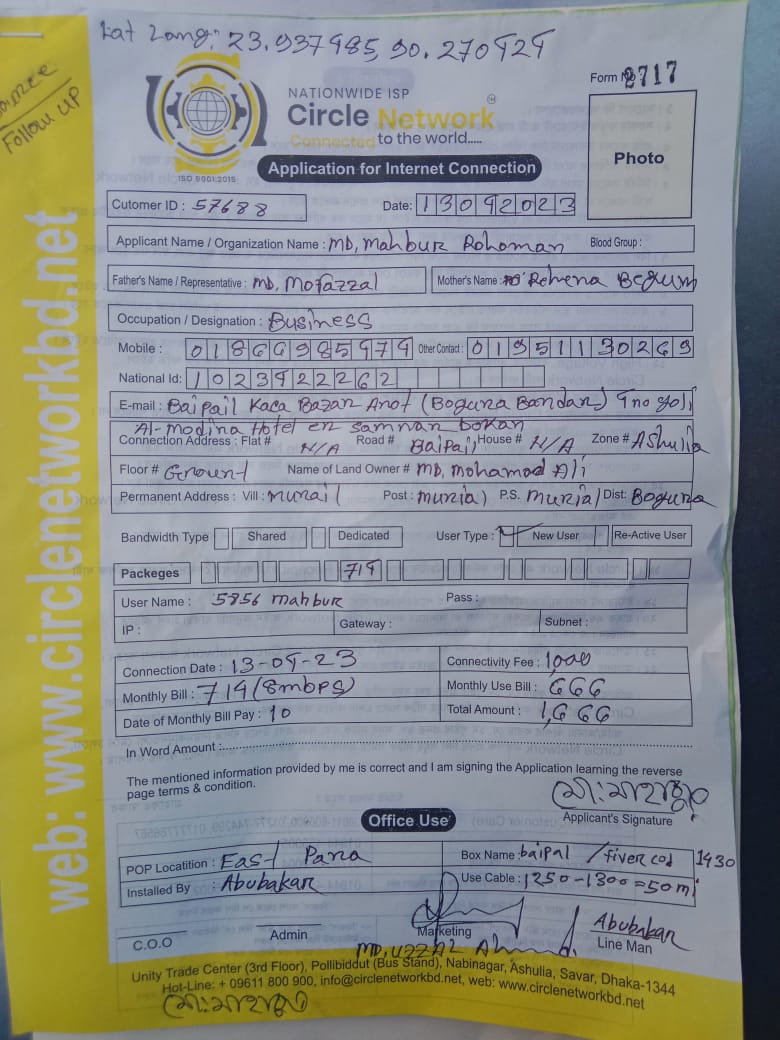 Lat Lang: 23.937485, 90.270424
Source
Follow UP
NATIONWIDE ISP
Circle Network
Connected to the world.....
ISO 9001:2015
Form No 2717
Photo
Application for Internet Connection
Cutomer ID : 57688
Date: 13042023
Applicant Name / Organization Name : MD, Mahbur Rohoman Blood Group :
Father's Name / Representative : MD, Mofazzal Mother's Name : Rehena Begum
Occupation / Designation : Business
Mobile : 01866985474 Other Contact : 01951130269
National Id: 1023422262
E-mail : Baipail Kaca Bazar Arot (Boguna Bandar) 4 no goli
Al-modina Hotel en samnar Dokan
Connection Address : Flat # N/A Road # Baipail House # N/A Zone # Ashulia
Floor # Ground Name of Land Owner # MD, Mohamod Ali
Permanent Address : Vill : murail Post : murial P.S. murial Dist: Boguna
Bandwidth Type Shared Dedicated User Type : ✓ New User Re-Active User
Packeges 714
User Name : 5856 mahbur Pass :
IP : Gateway : Subnet :
Connection Date : 13-04-23 Connectivity Fee : 1000
Monthly Bill : 714 (8mbps) Monthly Use Bill : 666
Date of Monthly Bill Pay : 10 Total Amount : 1,666
In Word Amount :
The mentioned information provided by me is correct and I am signing the Application learning the reverse
page terms & condition.
মোঃ মাহাবুর
Applicant's Signature
Office Use
POP Locatition : East Para Box Name : baipal / fiver cod 1430
Installed By Abubakar Use Cable : 1250-1300=50m
C.O.O Admin Marketing Abubakar
Line Man
MD, Uzzal Ahmed.
Unity Trade Center (3rd Floor), Pollibiddut (Bus Stand), Nabinagar, Ashulia, Savar, Dhaka-1344
Hot-Line: + 09611 800 900, info@circlenetworkbd.net, web: www.circlenetworkbd.net
মোঃ মাহাবুর
web: www.circlenetworkbd.net